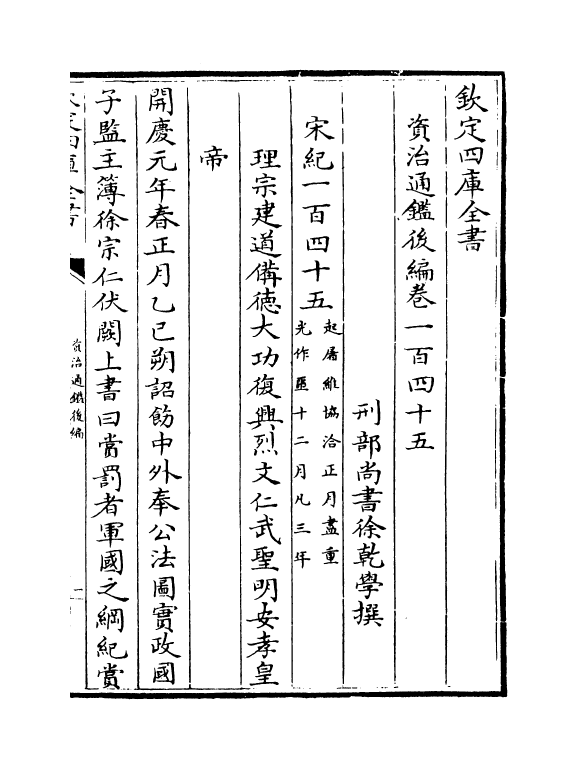 欽定四庫全書
資治通鑑後編卷一百四十五
刑部尚書徐乾學撰
宋紀一百四十五
起屠維協洽正月盡重
光作噩十二月凡三年
理宗建道備徳大功復興烈文仁武聖明安孝皇
帝
開慶元年春正月乙巳朔詔飭中外奉公法圖實政國
子監主簿徐宗仁伏闕上書曰賞罰者軍國之綱紀賞
欽定四庫全書
資治通鑑後編
一